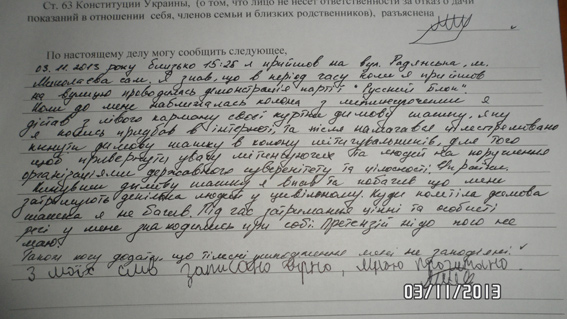 Ст. 63 Конституции Украины, (о том, что лицо не несет ответственности за отказ о дачи
показаний в отношении себя, членов семьи и близких родственников), разъяснена
По настоящему делу могу сообщить следующее,
03.11.2013 року близько 15:25 я прийшов на вул. Радянська, м.
Миколаєва сам. Я знав, що в період часу коли я прийшов
на вулицю проводилась демонстрація партії "Русский блок".
Коли до мене наближалась колона з мітингуючими я
дістав з лівого карману своєї куртки димову шашку, яку
я колись придбав в інтернеті, та після намагався
кинути димову шашку в колону мітингувальників, для того
щоб привернути увагу мітингуючих та людей на порушення
організаціями державного суверенітету та цілісності України.
Кинувши димову шашку я впав та побачив що мене
затримують декілька людей у цивільному. Куди полетіла димова
шашка я не бачив. Під час затримання цінні та особисті
речі у мене знаходились при собі. Претензій ні до кого не
маю.
Також хочу додати, що тілесні ушкодження мені не заподіяні.
З моїх слів записано вірно, мною прочитано.
03/11/2013